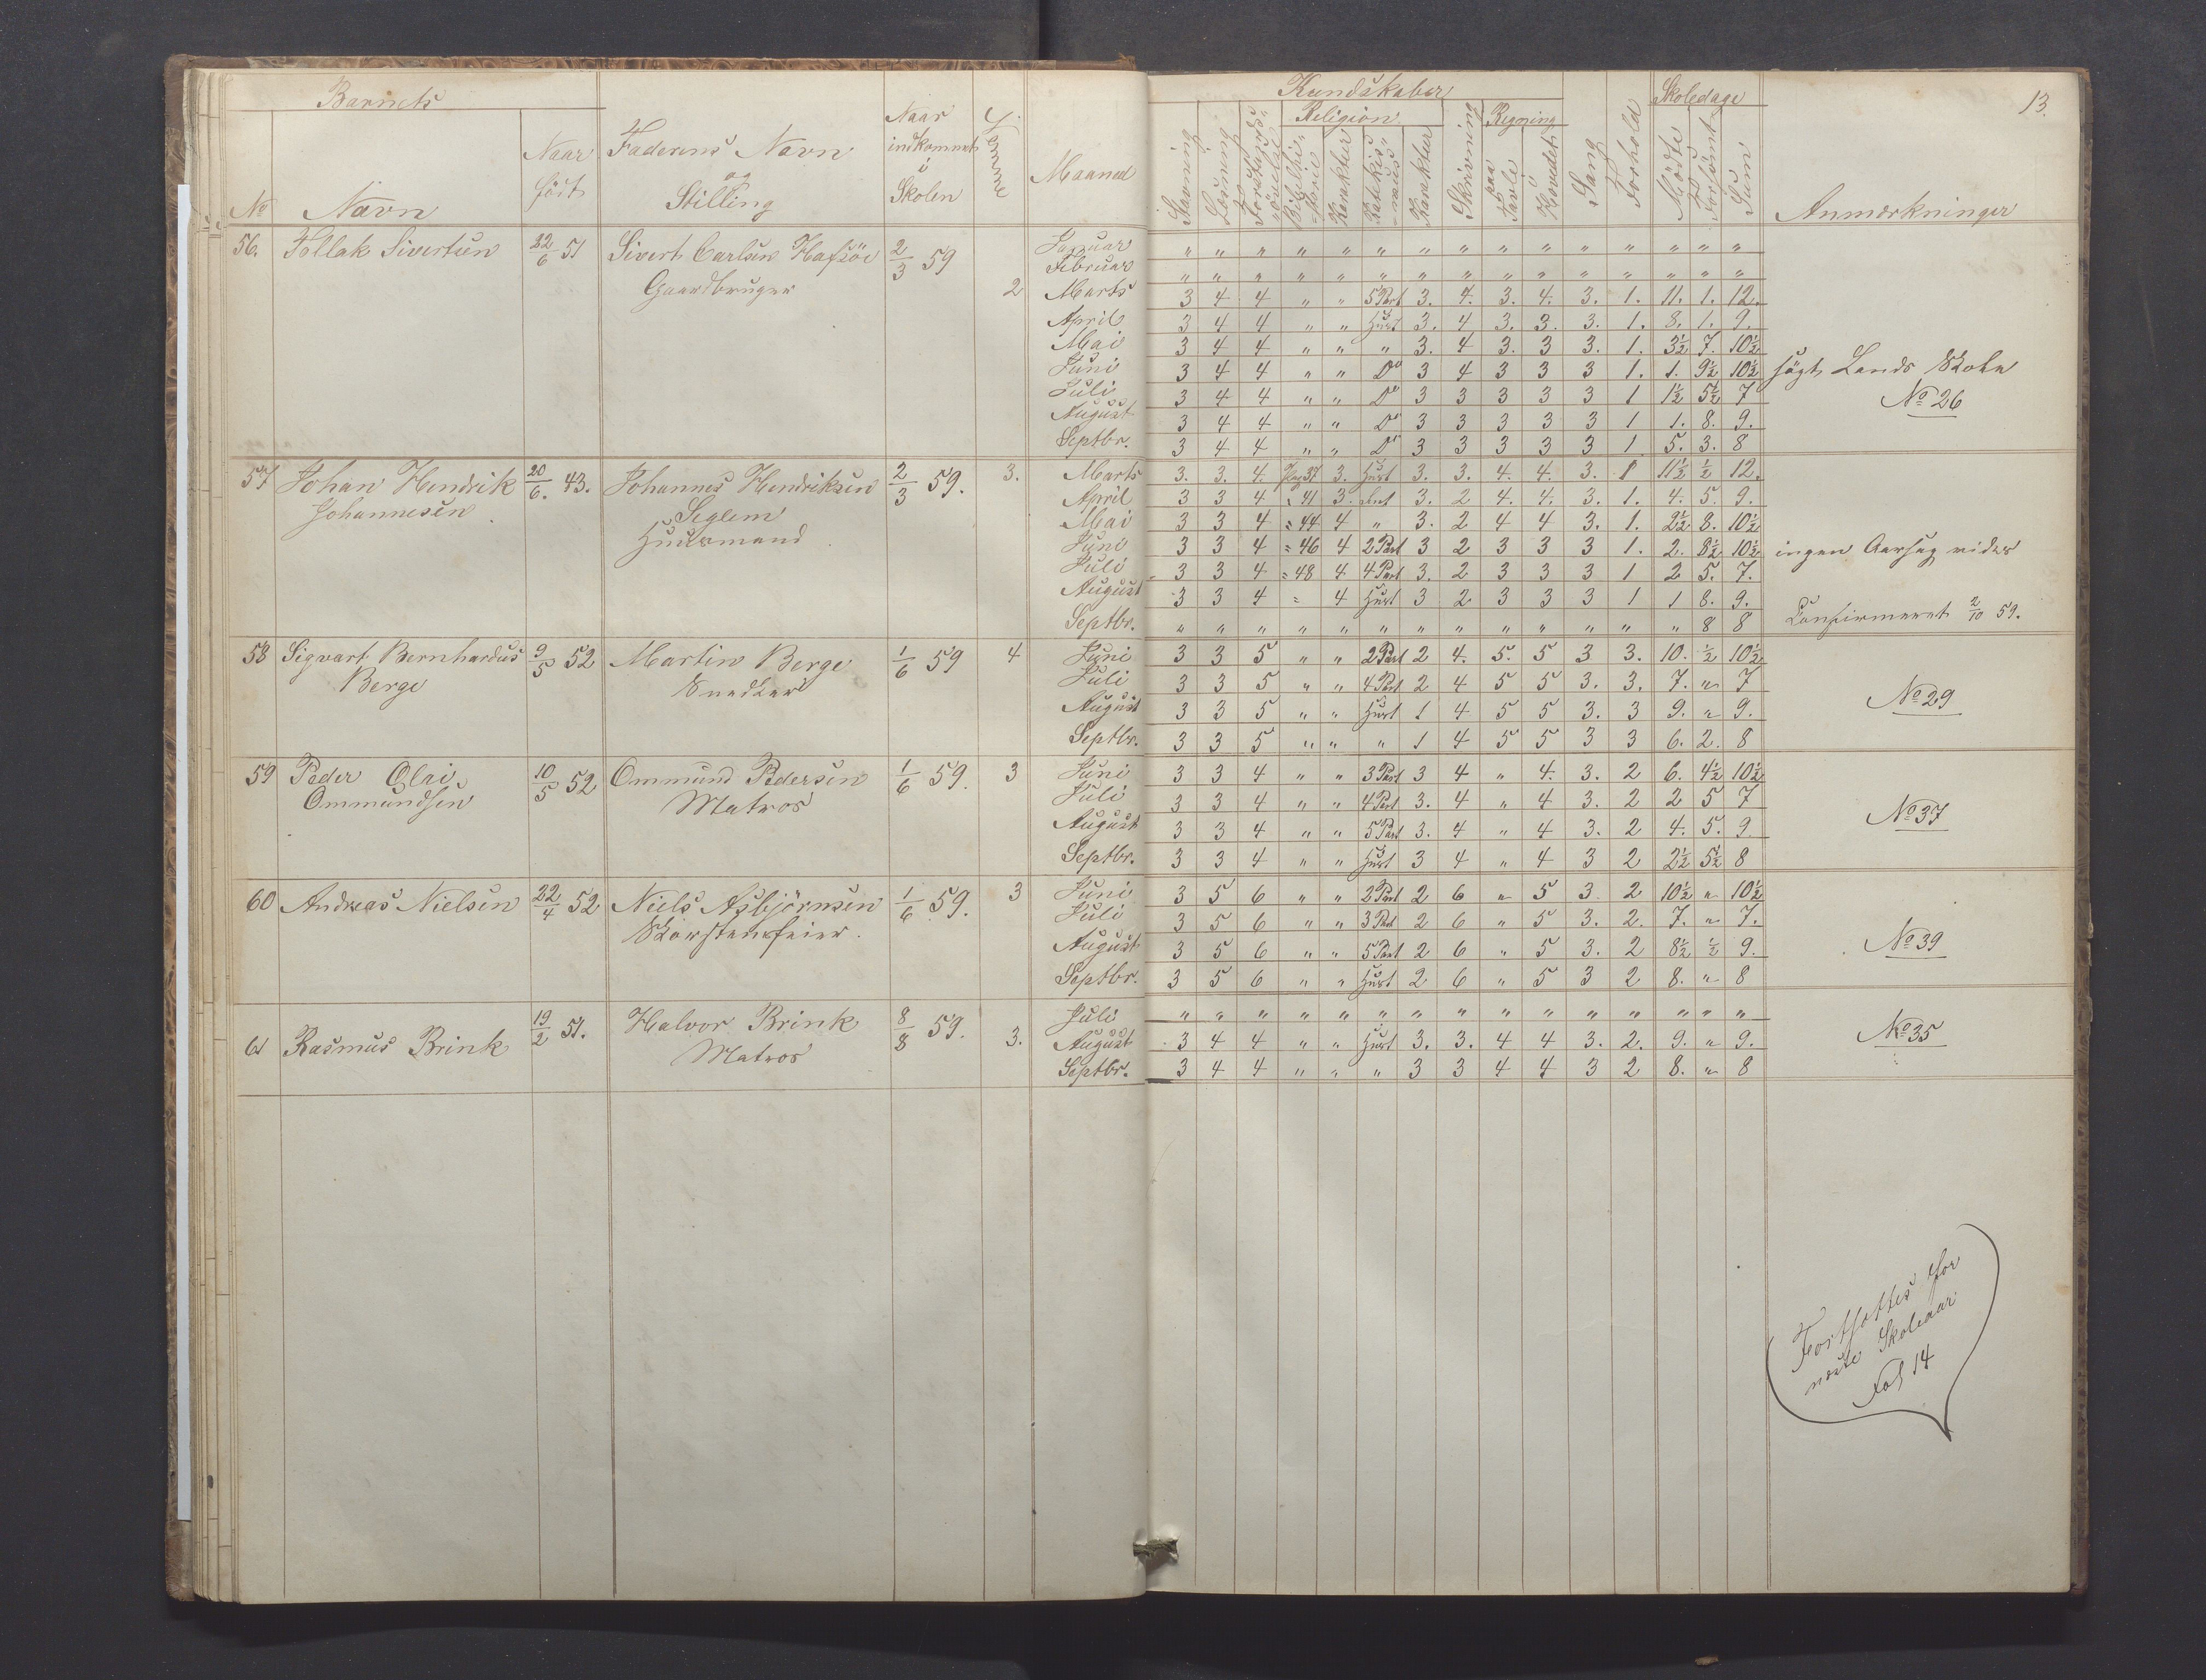 13.
Barnets
No
Navn
Naar
födt
Faderens Navn
og
Stilling
Naar
indkommet
i
Skolen
Maaned
Kundskaber
Stavning
Læsning
Religion
Karaktur
Karaktur
Skrivning
Regning
paa
Tavle
i
Hovedet
Sang
Forhold
Skoledage
Mödte
Forsömt
Sum
Anmærkninger
56. Tollak Sivertsen 22/6 51 Sivert Carlsen Hafsöe 2/3 59 2
Gaardbruger
Januar " " " " " " " " " " " " " " "
Februar " " " " " " " " " " " " " " "
Marts 3 4 4 " " 5 Part 3. 4. 3. 4. 3. 1. 11. 1. 12.
April 3 4 4 " " Hust 3. 4 3. 3. 3. 1. 8. 1. 9.
Mai 3 4 4 " " " 3. 4 3. 3 3. 1. 3½ 7. 10½
Juni 3 4 4 " " Do 3 4 3 3 3 1. 1. 9½ 10½ sögt Lands Skole
Juli 3 4 4 " " Do 3 3 3 3 3 1 1½ 5½ 7 No 26
August 3 4 4 " " Do 3 3 3 3 3 1 1. 8. 9.
Septbr. 3 4 4 " " Do 3 3 3 3 3 1 5. 3. 8
57 Johan Hendrik 20/6. 43. Johannes Hendriksen 2/3 59. 3.
Johannesen Seglem
Huusmand
Marts 3. 3. 4. Pag 37 3. Hust 3. 3. 4. 4. 3. 1 11½ ½ 12.
April 3 3 4 " 41 3. 3. 2 4. 4. 3. 1. 4. 5. 9.
Mai 3 3 4 = 44 4 " 3. 2 4 4 3. 1. 2½ 8. 10½
Juni 3 3 4 = 46 4 2 Part 3 2 3 3 3 1. 2. 8½ 10½ ingen
Juli 3 3 4 = 48 4 4 Part 3. 2 3 3 3 1 2 5. 7.
August 3 3 4 = 4 Hust 3 2 3 3 3 1 1 8. 9.
Septbr. " " " " " " " " " " " " " 8 8 Confirmeret 2/10 59.
58 Sigvart Bernhardus 9/5 52 Martin Berge 1/6 59 4
Berge Snedker
Juni 3 3 5 " " 2 Part 2 4. 5. 5 3 3. 10. ½ 10½
Juli 3 3 5 " " 4 Part 2 4 5 5 3. 3. 7. " 7
August 3 3 5 " " Hust 1 4 5 5 3. 3 9. " 9. No 29
Septbr. 3 3 5 " " " 1 4 5 5 3 3 6. 2. 8
59 Peder Olai 10/5 52 Ommund Pedersen 1/6 59. 3
Ommundsen Matros
Juni 3 3 4 " " 3 Part 3 4 " 4. 3. 2 6. 4½ 10½
Juli 3 3 4 " " 4 Part 3. 4 " 4 3. 2 2 5 7
August 3 3 4 " " 5 Part 3. 4 " 4 3. 2 4. 5. 9 No 37
Septbr. 3 3 4 " " Hust 3 4 " 4 3 2 2½ 5½ 8
60 Andreas Nielsen 22/4 52 Niels Asbjörnsen 1/6 59. 3
Skorstensfeier.
Juni 3 5 6 " " 2 Part 2 6 " 5 3. 2 10½ " 10½
Juli 3 5 6 " " 3 Part 2 6 " 5 3. 2. 7. " 7.
August 3 5 6 " " 5 Part 2 6 " 5 3. 2 8½ ½ 9. No 39
Septbr. 3 5 6 " " Hust 2 6 " 5 3 2 8. " 8
61 Rasmus Brink 19/2 51. Halvor Brink 8/8 59. 3.
Matros
Juli " " " " " " " " " " " " " " "
August 3 4 4 " " Hust 3. 3. 4 4 3. 2. 9. " 9. No 35
Septbr. 3 4 4 " " " 3 3 4 4 3 2 8. " 8
Fortsættes for
næste Skoleaar
Fol 14